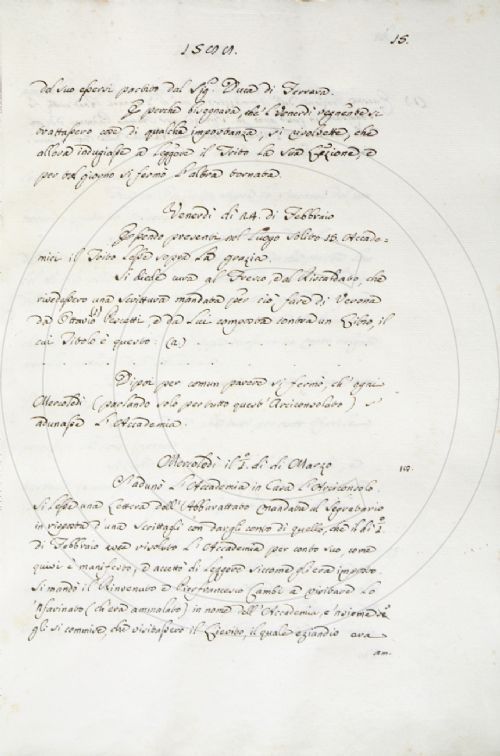 15.
del suo essersi partito dal Sig. Duca di Ferrara.
E perchè bisognava, che 'l Venerdì vegnente si
trattassero cose di qualche importanza, si risolvette, che
allora indugiasse a leggere il Trito la sua Lezione, e
per tal giorno si fermò l'altra tornata.
Venerdì di 24. di Febbraio
Essendo presenti nel luogo solito 18. Accade=
mici il Trito lesse sopra la grazia.
Si diede cura al Fresco, e dal Riscaldato, che
rivedessero una scrittura mandata per ciò fare di Verona
da Ottavio Pescetti, e da lui composta contra un Libro, il
cui Titolo è questo: (a)
Dipoi per comun parere si fermò, ch' ogni
Mercoledì (parlando solo per tutto quest' Arciconsolato) s'
adunasse l'Accademia.
Mercoledì il 1. dì di Marzo
Si adunò l'Accademia in Casa l'Arciconsolo.
Si lesse una Lettera dell'Affrettato mandata al Segretario
in risposta d'una scrittagli con dargli conto di quello, che il dì 1.
di Febbraio avea risoluto l'Accademia per conto suo, come
quivi è manifesto, e accettò di leggere siccome gli era imposto.
Si mandò il Rinvenuto e Pierfrancesco Cambi a visitare lo
'Nfarinato (ch'era ammalato) in nome dell'Accademia, e insieme
gli si commise, che visitassero il, il quale eziandio era
am.